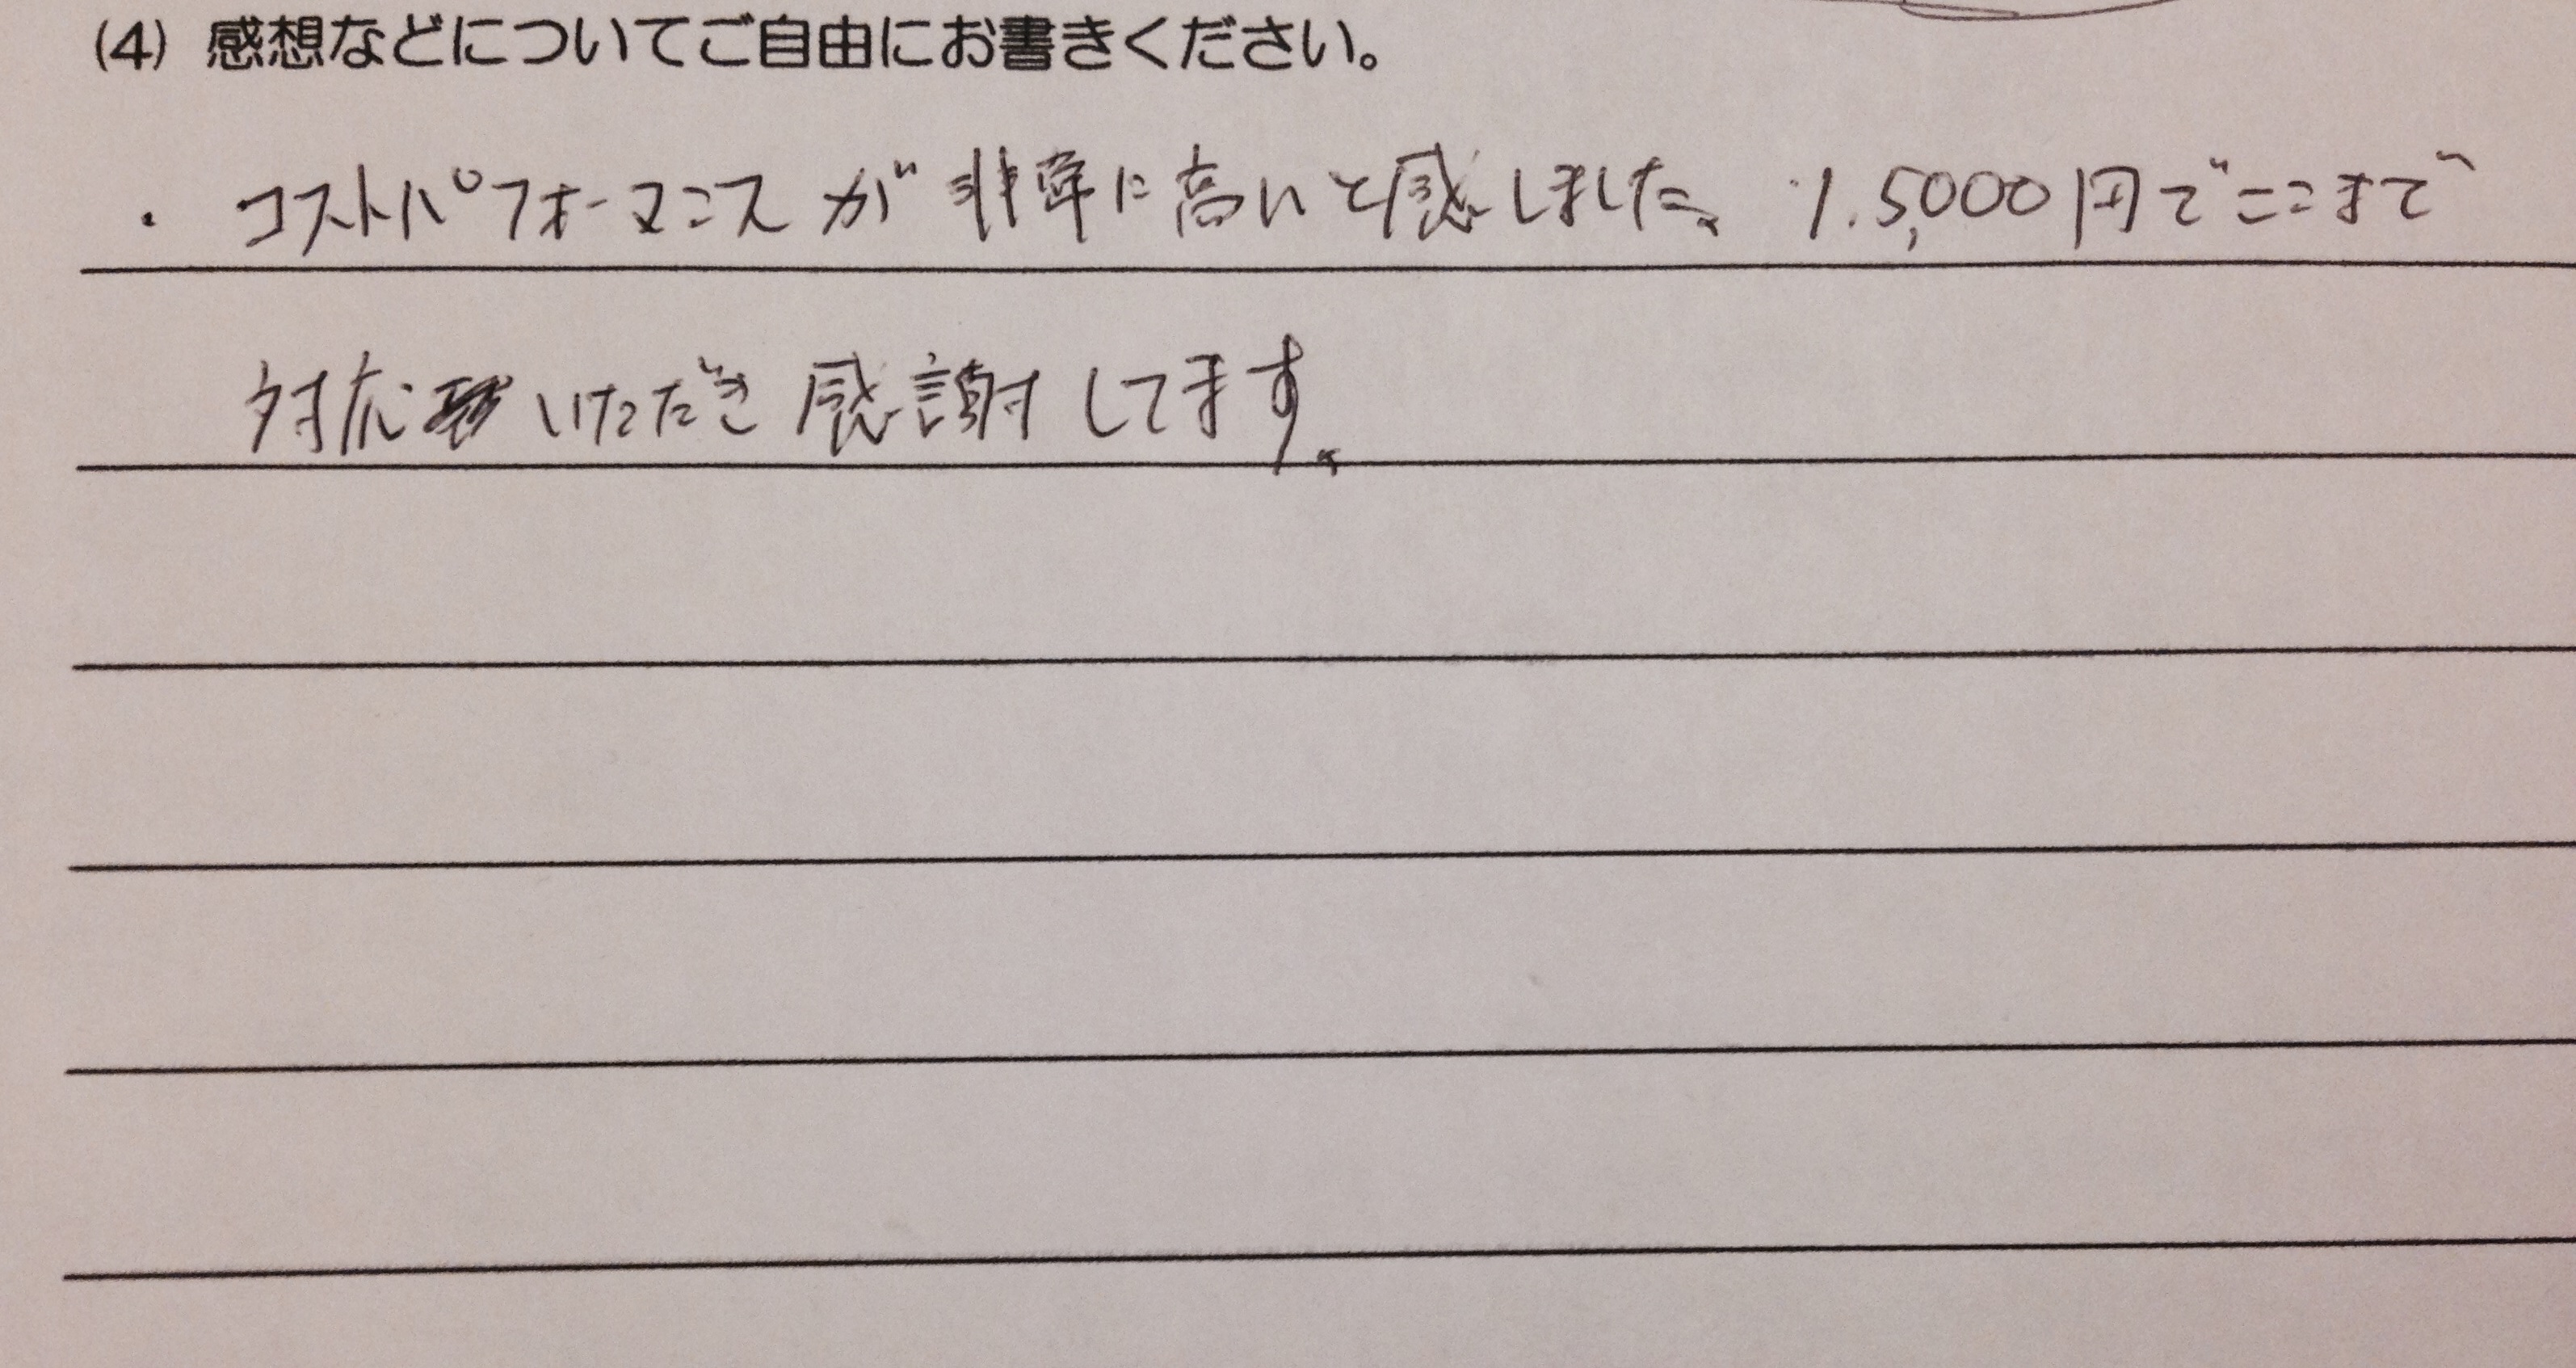 (4) 感想などについてご自由にお書きください。
・コストパフォーマンスが非常に高いと感じました。1.5,000円でここまで
対応いただき感謝してます。